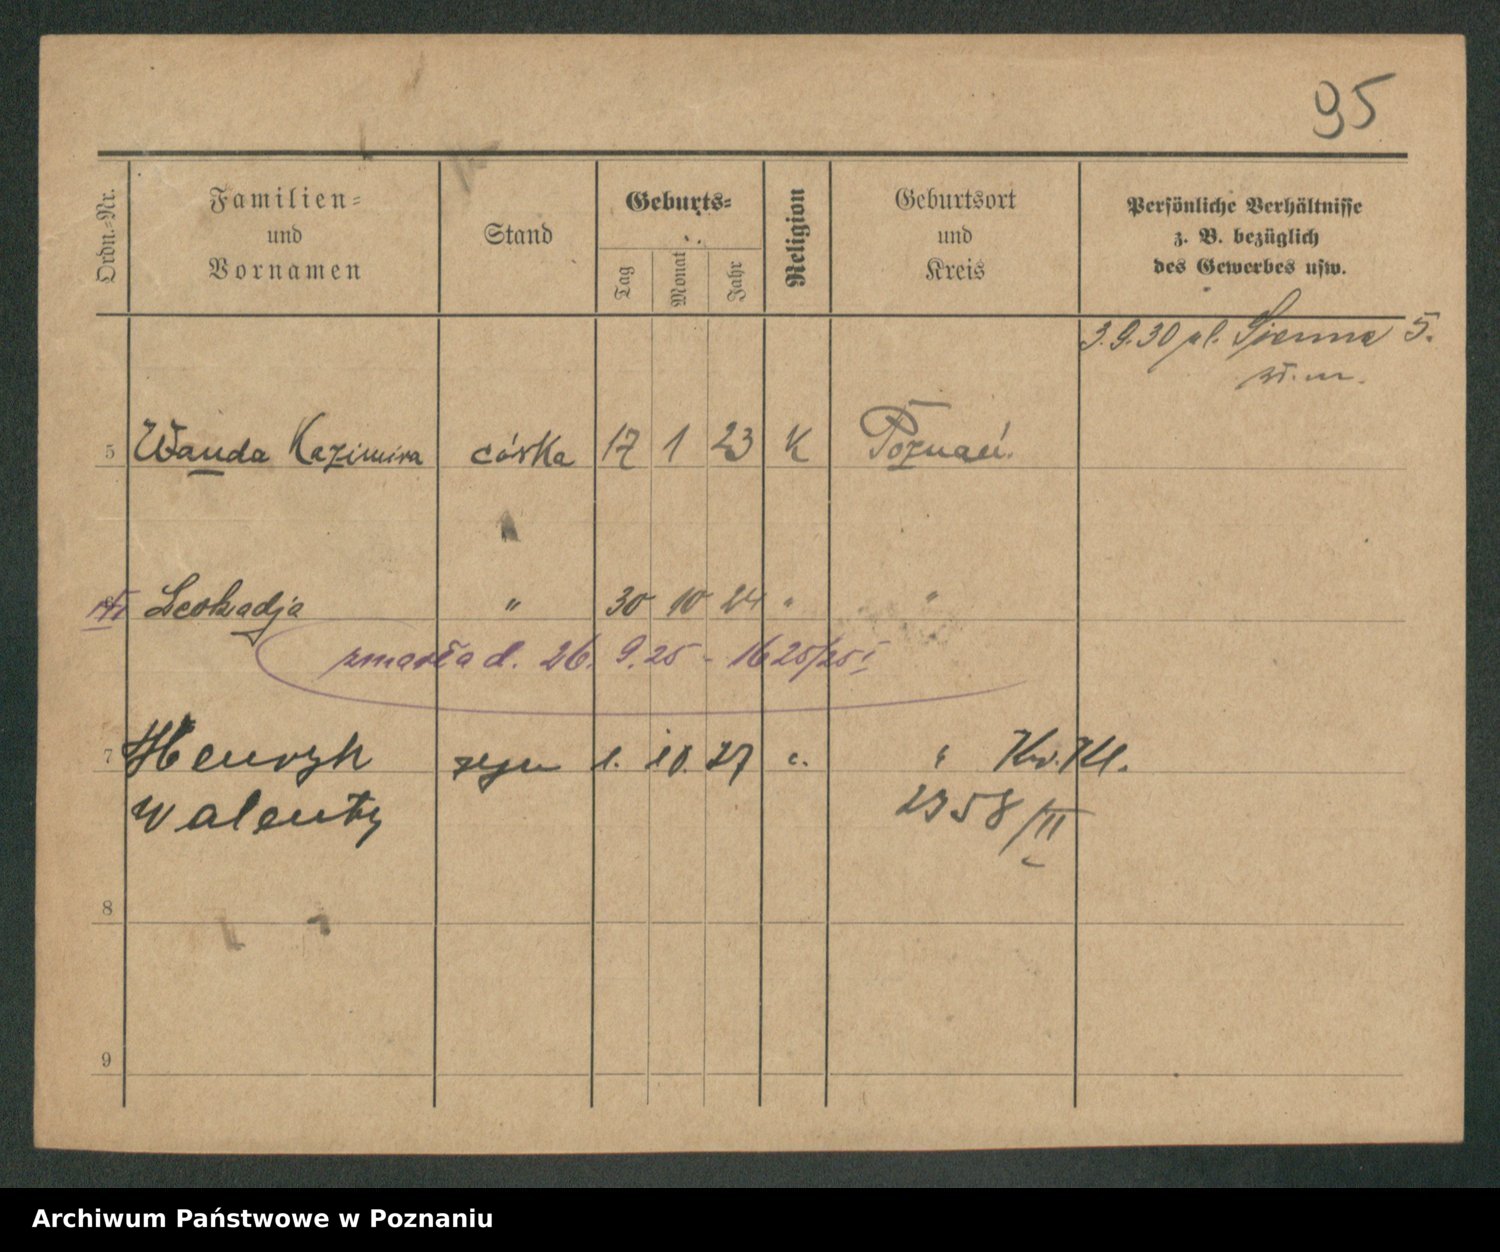 95
Ordn.-Nr.
Familien-
und
Vornamen
Stand
Geburts-
Tag
Monat
Jahr
Religion
Geburtsort
und
Kreis
Persönliche Verhältnisse
z. B. bezüglich
des Gewerbes usw.
3.9.30 pl. Sienne 5.
5 Wanda Kazimira córka 17 1 23 K Poznań.
Leokadja " 30 10 24 " "
zmarła d. 26. 9. 25 - 1625/25 I
7 Henryk syn 1. 10. 27 "
Walenty 2958/II
8
9
Archiwum Państwowe w Poznaniu